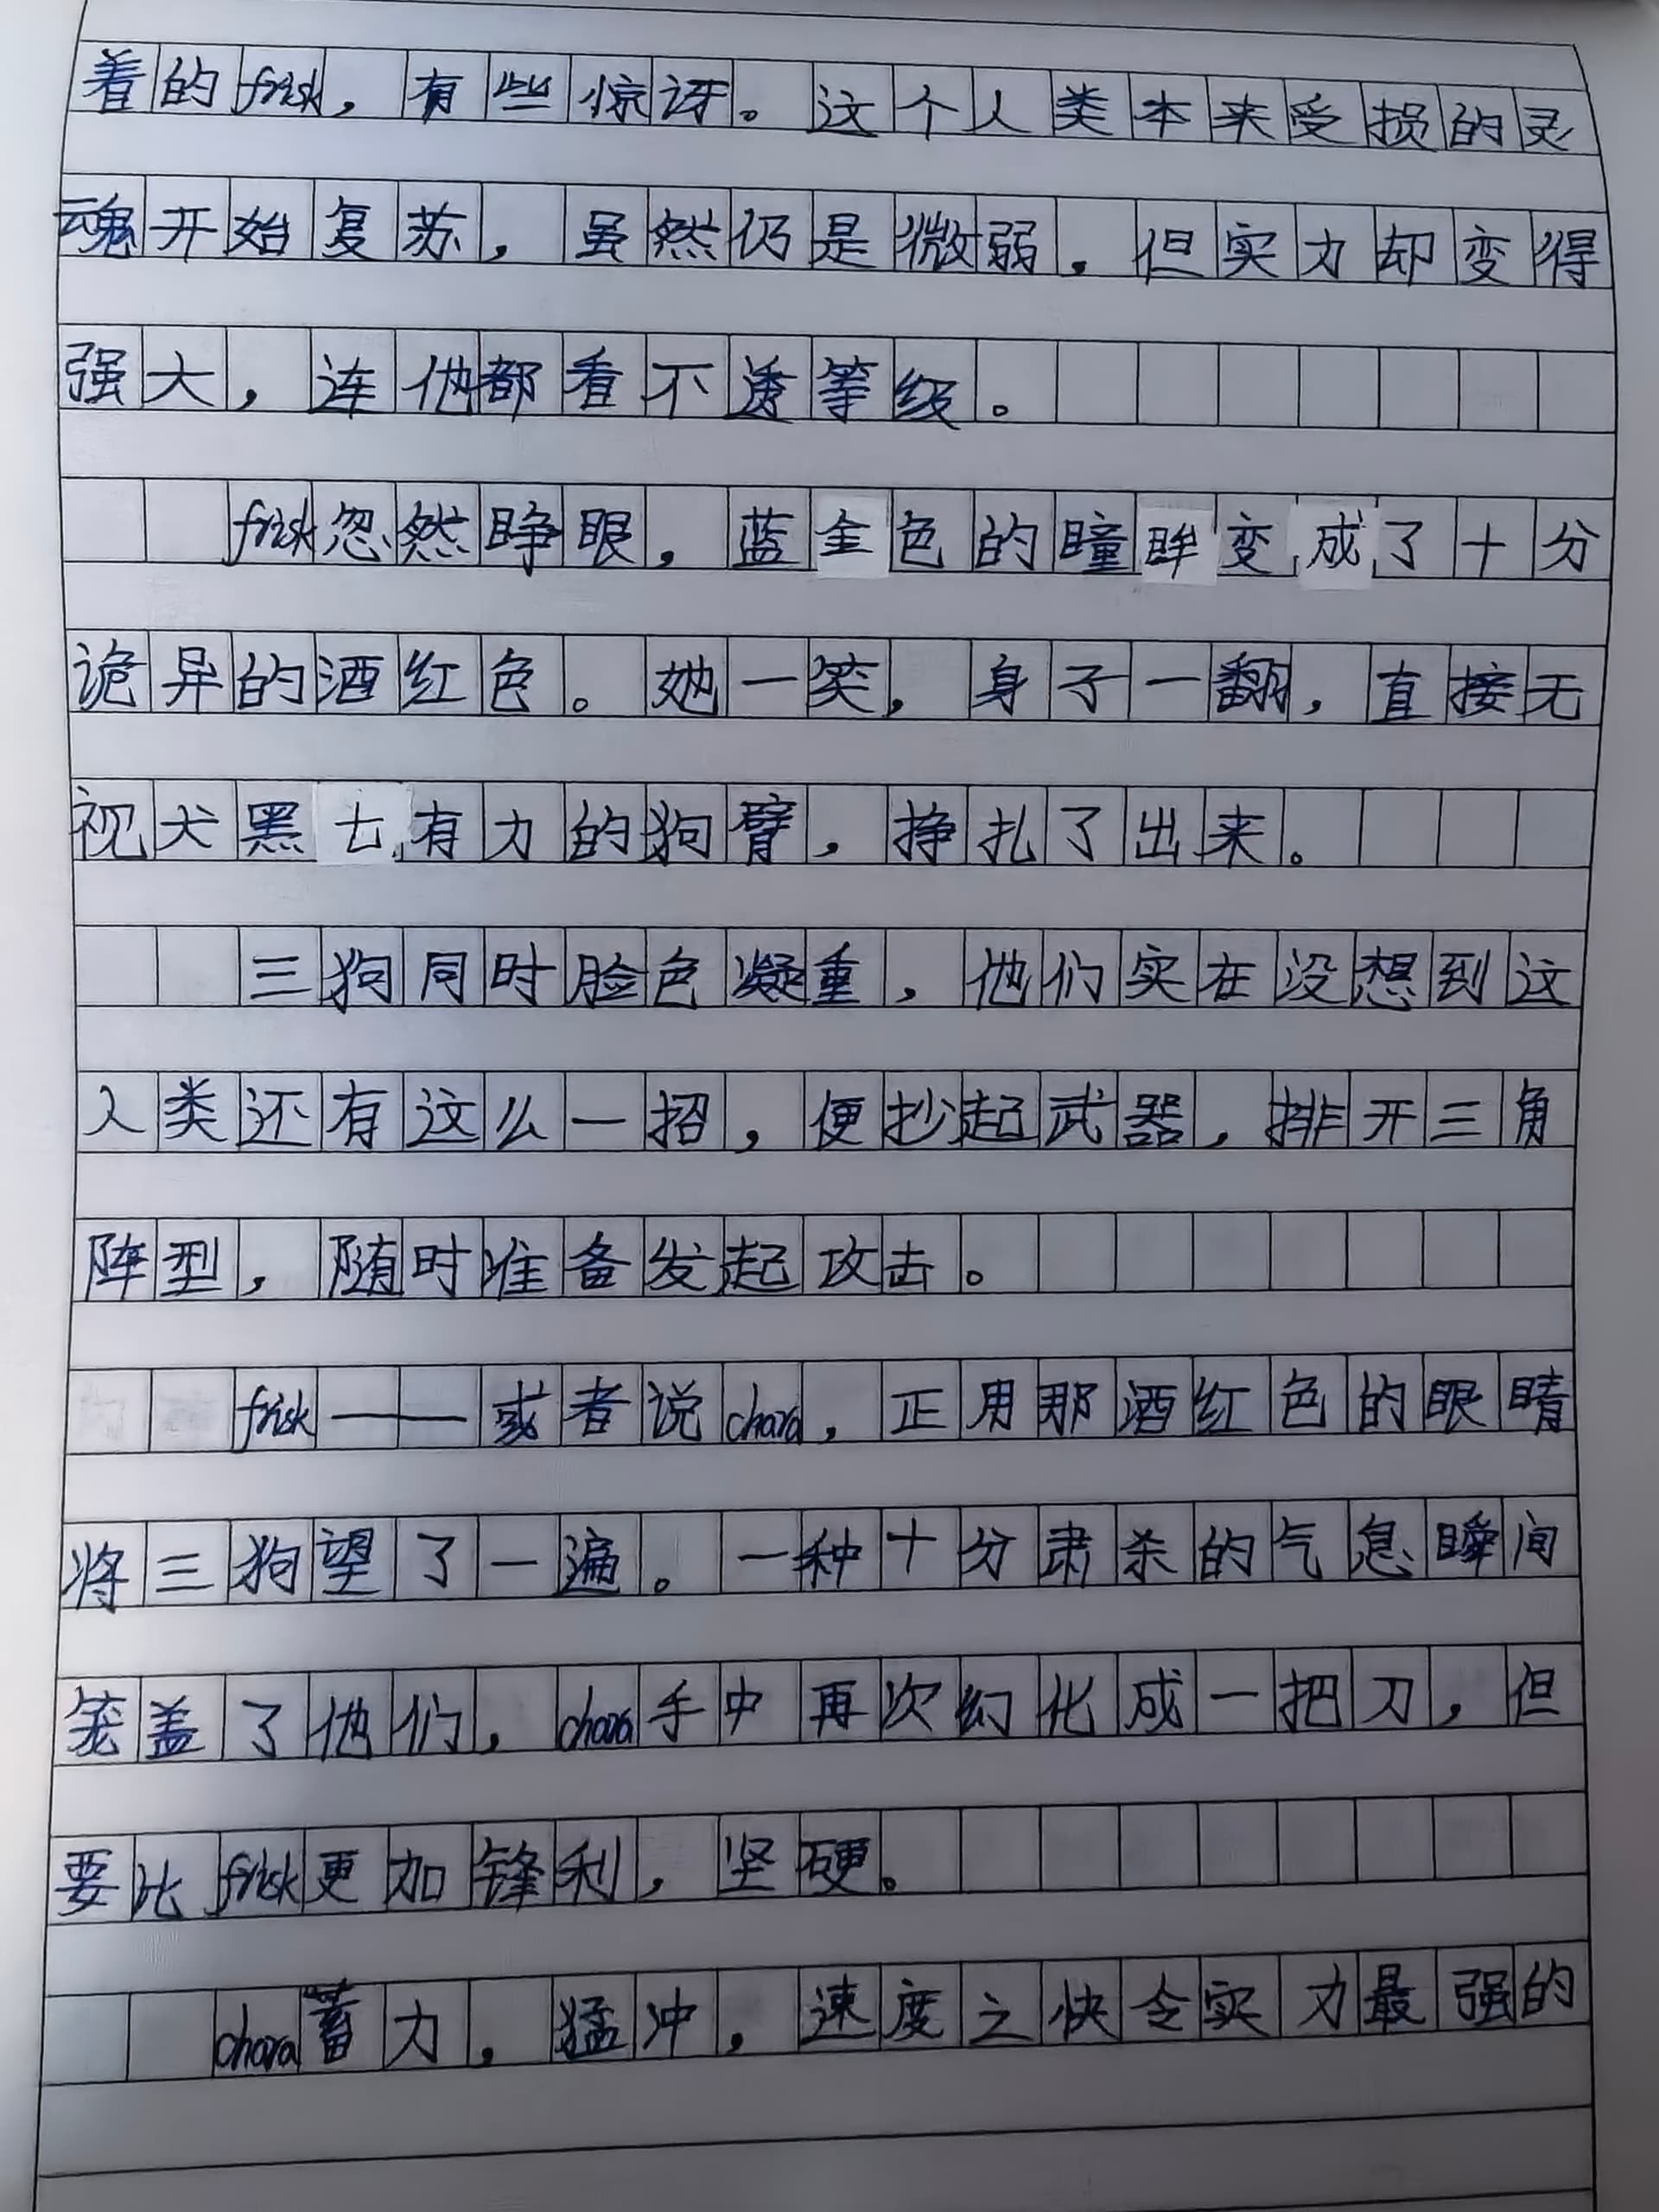 着的frisk，有些惊讶。这个人类本来受损的灵
魂开始复苏，虽然仍是微弱，但实力却变得
强大，连他都看不透等级。
frisk忽然睁眼，蓝金色的瞳眸变成了十分
诡异的酒红色。她一笑，身子一翻，直接无
视犬黑七有力的狗臂，挣扎了出来。
三狗同时脸色凝重，他们实在没想到这
人类还有这么一招，便抄起武器，排开三角
阵型，随时准备发起攻击。
frisk——或者说chara，正用那酒红色的眼睛
将三狗望了一遍。一种十分肃杀的气息瞬间
笼盖了他们，chara手中再次幻化成一把刀，但
要比frisk更加锋利，坚硬。
chara蓄力，猛冲，速度之快令实力最强的